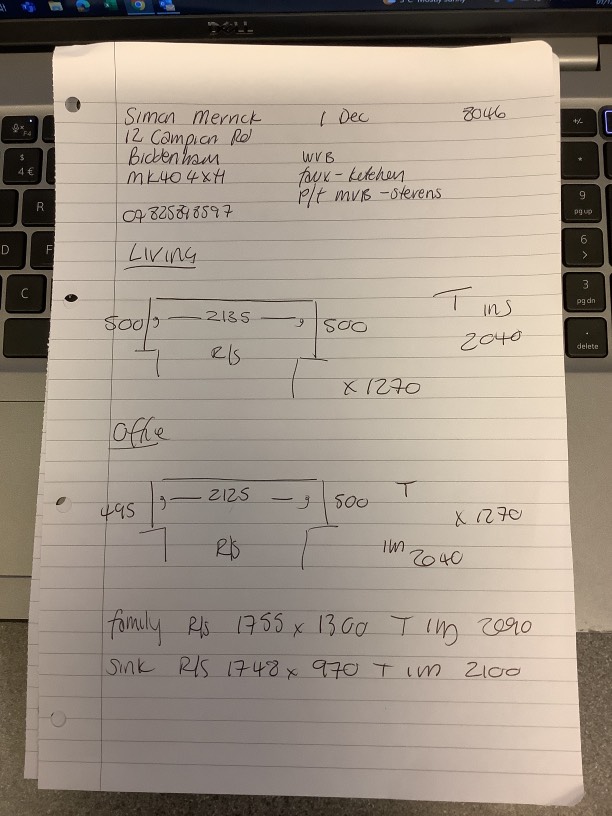 Simon Merrick 1 Dec 8046
12 Campion Rd
Biddenham WVB
MK40 4XH faux - kitchen
P/t MVB - Stevens
LIVING
500 2135 500 T ins
R/S 2040
x 1270
Office
495 2125 500 T
x 1270
R/S 2040
family R/S 1755 x 1300 T 2090
Sink R/S 1748 x 970 T 2100
DELL
F4
$
4 €
R
D
F
C
+/-
*
9
pg up
6
>
3
pg dn
.
delete